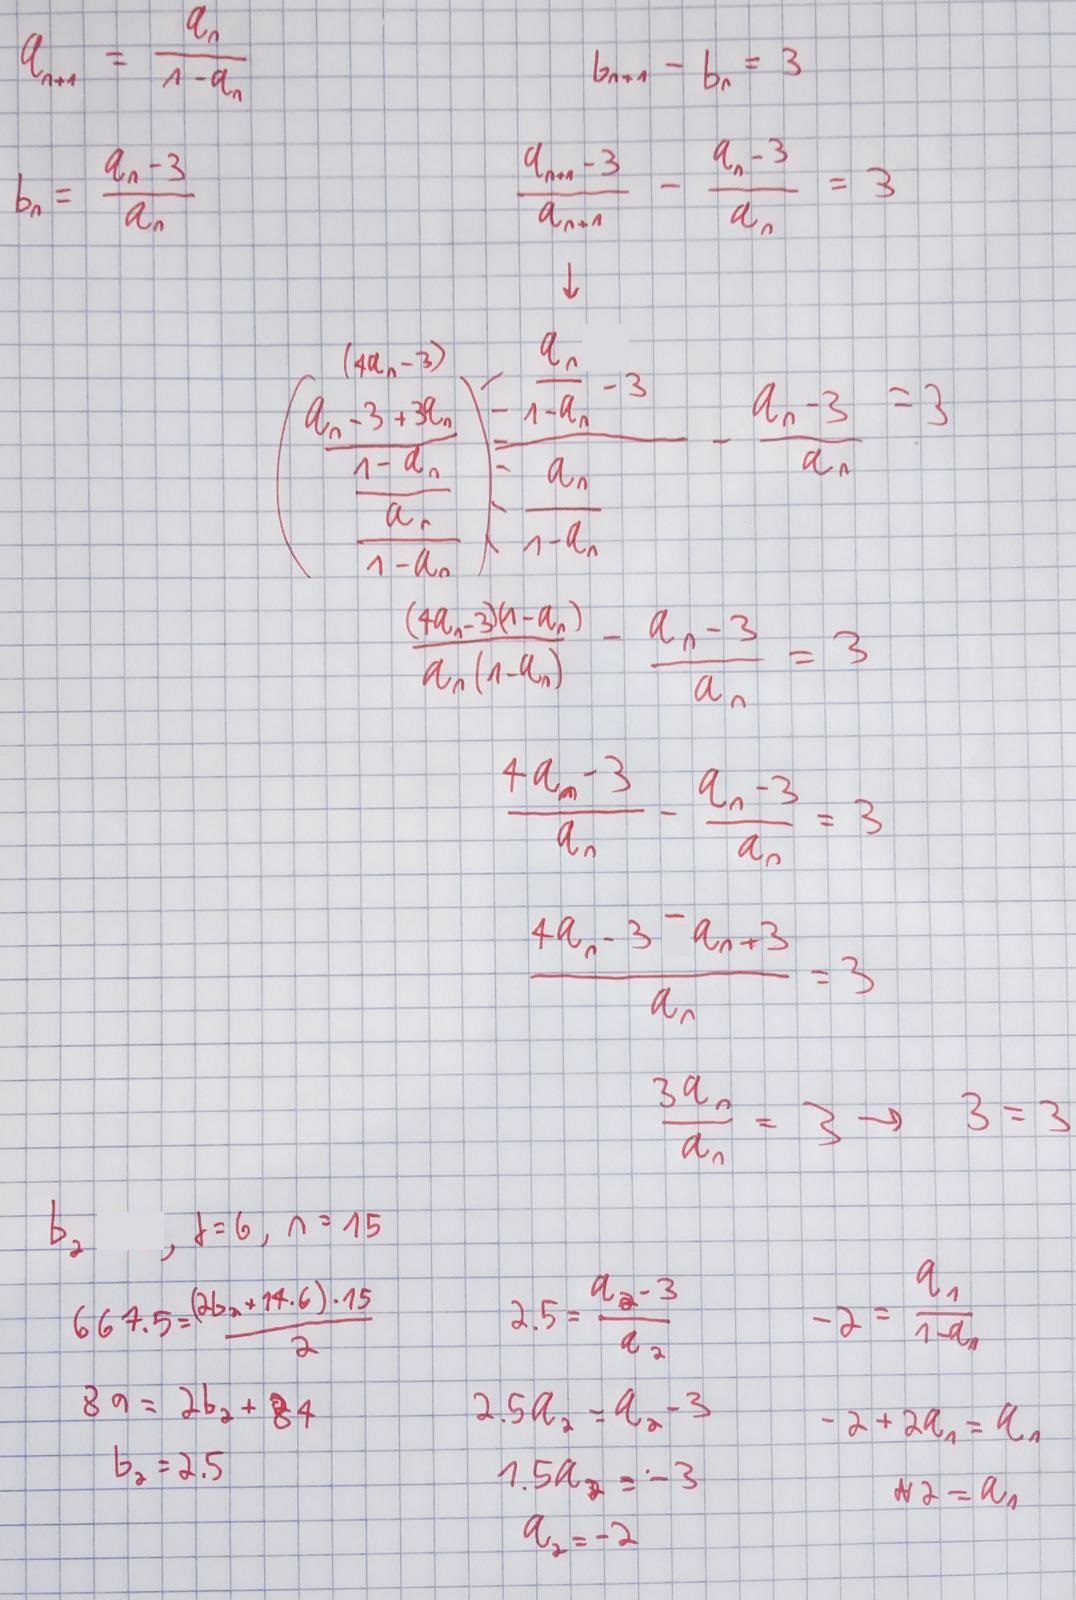 a_{n+1} = \frac{a_n}{1-a_n}
b_{n+1} - b_n = 3
b_n = \frac{a_n-3}{a_n}
\frac{a_{n+1}-3}{a_{n+1}} - \frac{a_n-3}{a_n} = 3
↓
(4a_n-3)
\left(\frac{\frac{a_n-3+3a_n}{1-a_n}}{\frac{a_n}{1-a_n}}\right) = \frac{\frac{a_n}{1-a_n}-3}{\frac{a_n}{1-a_n}} - \frac{a_n-3}{a_n} = 3
\frac{(4a_n-3)(1-a_n)}{a_n(1-a_n)} - \frac{a_n-3}{a_n} = 3
\frac{4a_n-3}{a_n} - \frac{a_n-3}{a_n} = 3
\frac{4a_n-3-a_n+3}{a_n} = 3
\frac{3a_n}{a_n} = 3 → 3 = 3
b_2 , d=6, n=15
667.5 = \frac{(2b_2+14·6)·15}{2}
89 = 2b_2 + 84
b_2 = 2.5
2.5 = \frac{a_2-3}{a_2}
2.5a_2 = a_2-3
1.5a_2 = -3
a_2 = -2
-2 = \frac{a_1}{1-a_1}
-2+2a_1 = a_1
2 = a_1